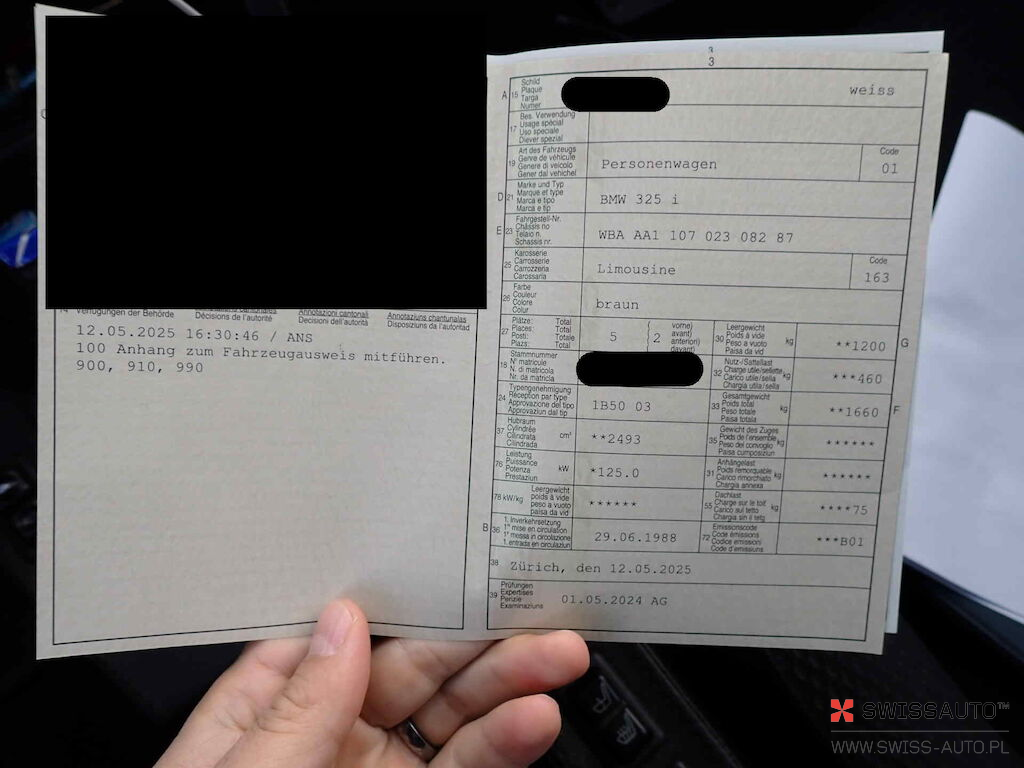 3
3
A 15 Schild
Plaque
Targa
Numer
weiss
17 Bes. Verwendung
Usage spécial
Uso speciale
Diever spezial
19 Art des Fahrzeugs
Genre de véhicule
Genere di veicolo
Gener dal vehichel
Personenwagen
Code
01
D 21 Marke und Typ
Marque et type
Marca e tipo
Marca e tip
BMW 325 i
E 23 Fahrgestell-Nr.
Châssis no
Telaio n.
Schassis nr.
WBA AA1 107 023 082 87
25 Karosserie
Carrosserie
Carrozzeria
Carossaria
Limousine
Code
163
26 Farbe
Couleur
Colore
Colur
braun
27 Plätze: Total
Places: Total
Posti: Totale
Plazs: Total
5
vorne)
avant)
anteriori)
davant)
2
30 Leergewicht
Poids à vide
Peso a vuoto
Paisa da vid
kg
**1200
G
18 Stammnummer
N° matricule
N. di matricola
Nr. da matricla
32 Nutz-/Sattellast
Charge utile/sellette
Carico utile/sella
Chargia utila/sella
kg
***460
24 Typengenehmigung
Réception par type
Approvazione del tipo
Approvaziun dal tip
1B50 03
33 Gesamtgewicht
Poids total
Peso totale
Paisa totala
kg
**1660
F
37 Hubraum
Cylindrée
Cilindrata
Cilindrada
cm³
**2493
35 Gewicht des Zuges
Poids de l'ensemble
Peso del convoglio
Paisa cumposiziun
kg
******
76 Leistung
Puissance
Potenza
Prestaziun
kW
*125.0
31 Anhängelast
Poids remorquable
Carico rimorchiato
Chargia annexa
kg
******
78 kW/kg
Leergewicht
poids à vide
peso a vuoto
paisa da vid
******
55 Dachlast
Charge sur le toit
Carico sul tetto
Chargia sin il tetg
kg
****75
B 36 1. Inverkehrsetzung
1re mise en circulation
1a messa in circolazione
1. entrada en circulaziun
29.06.1988
72 Emissionscode
Code émissions
Codice emissioni
Code d'emissiuns
***B01
38 Zürich, den 12.05.2025
39 Prüfungen
Expertises
Perizie
Examinaziuns
01.05.2024 AG
14 Verfügungen der Behörde
Décisions de l'autorité
Annotazioni cantonali
Decisioni dell'autorità
Annotaziuns chantunalas
Disposiziuns da l'autoritad
12.05.2025 16:30:46 / ANS
100 Anhang zum Fahrzeugausweis mitführen.
900, 910, 990
SWISSAUTO™
WWW.SWISS-AUTO.PL